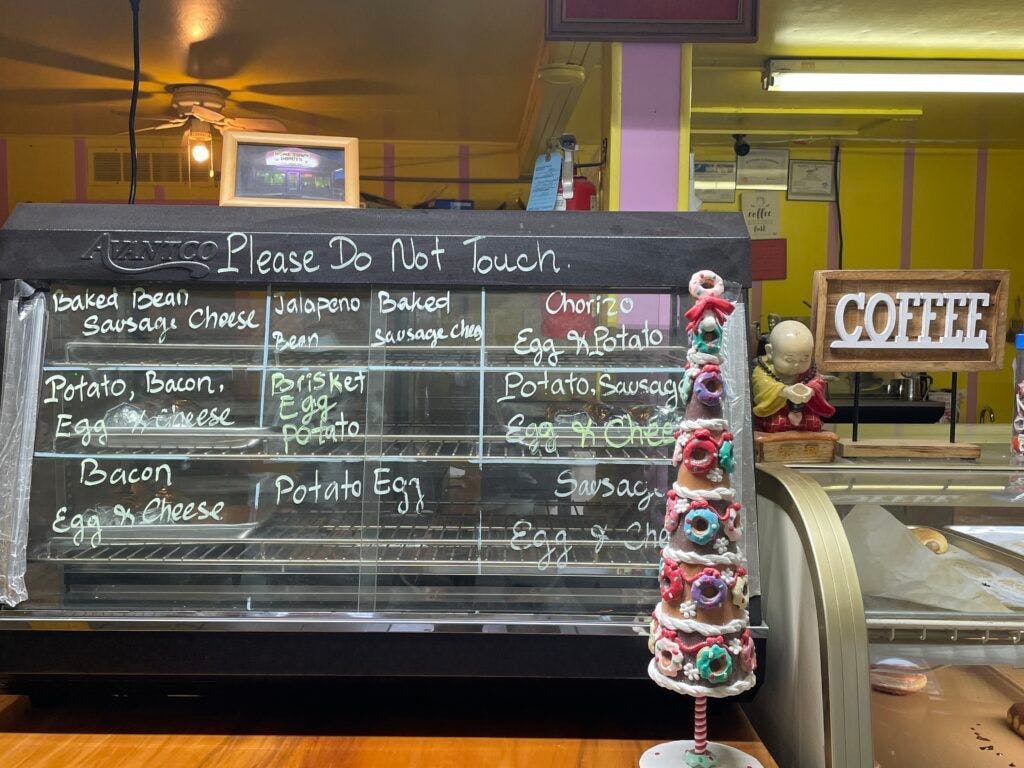 HOME TOWN
DONUTS
AVANTCO
Please Do Not Touch.
Baked Bean
Sausage Cheese
Jalapeno
Bean
Baked
Sausage chee
Chorizo
Egg & Potato
Potato, Bacon,
Egg & Cheese
Brisket
Egg
potato
Potato, Sausage
Egg & Chee
Bacon
Egg & Cheese
Potato Egg
Sausag
Egg & Che
coffee
COFFEE